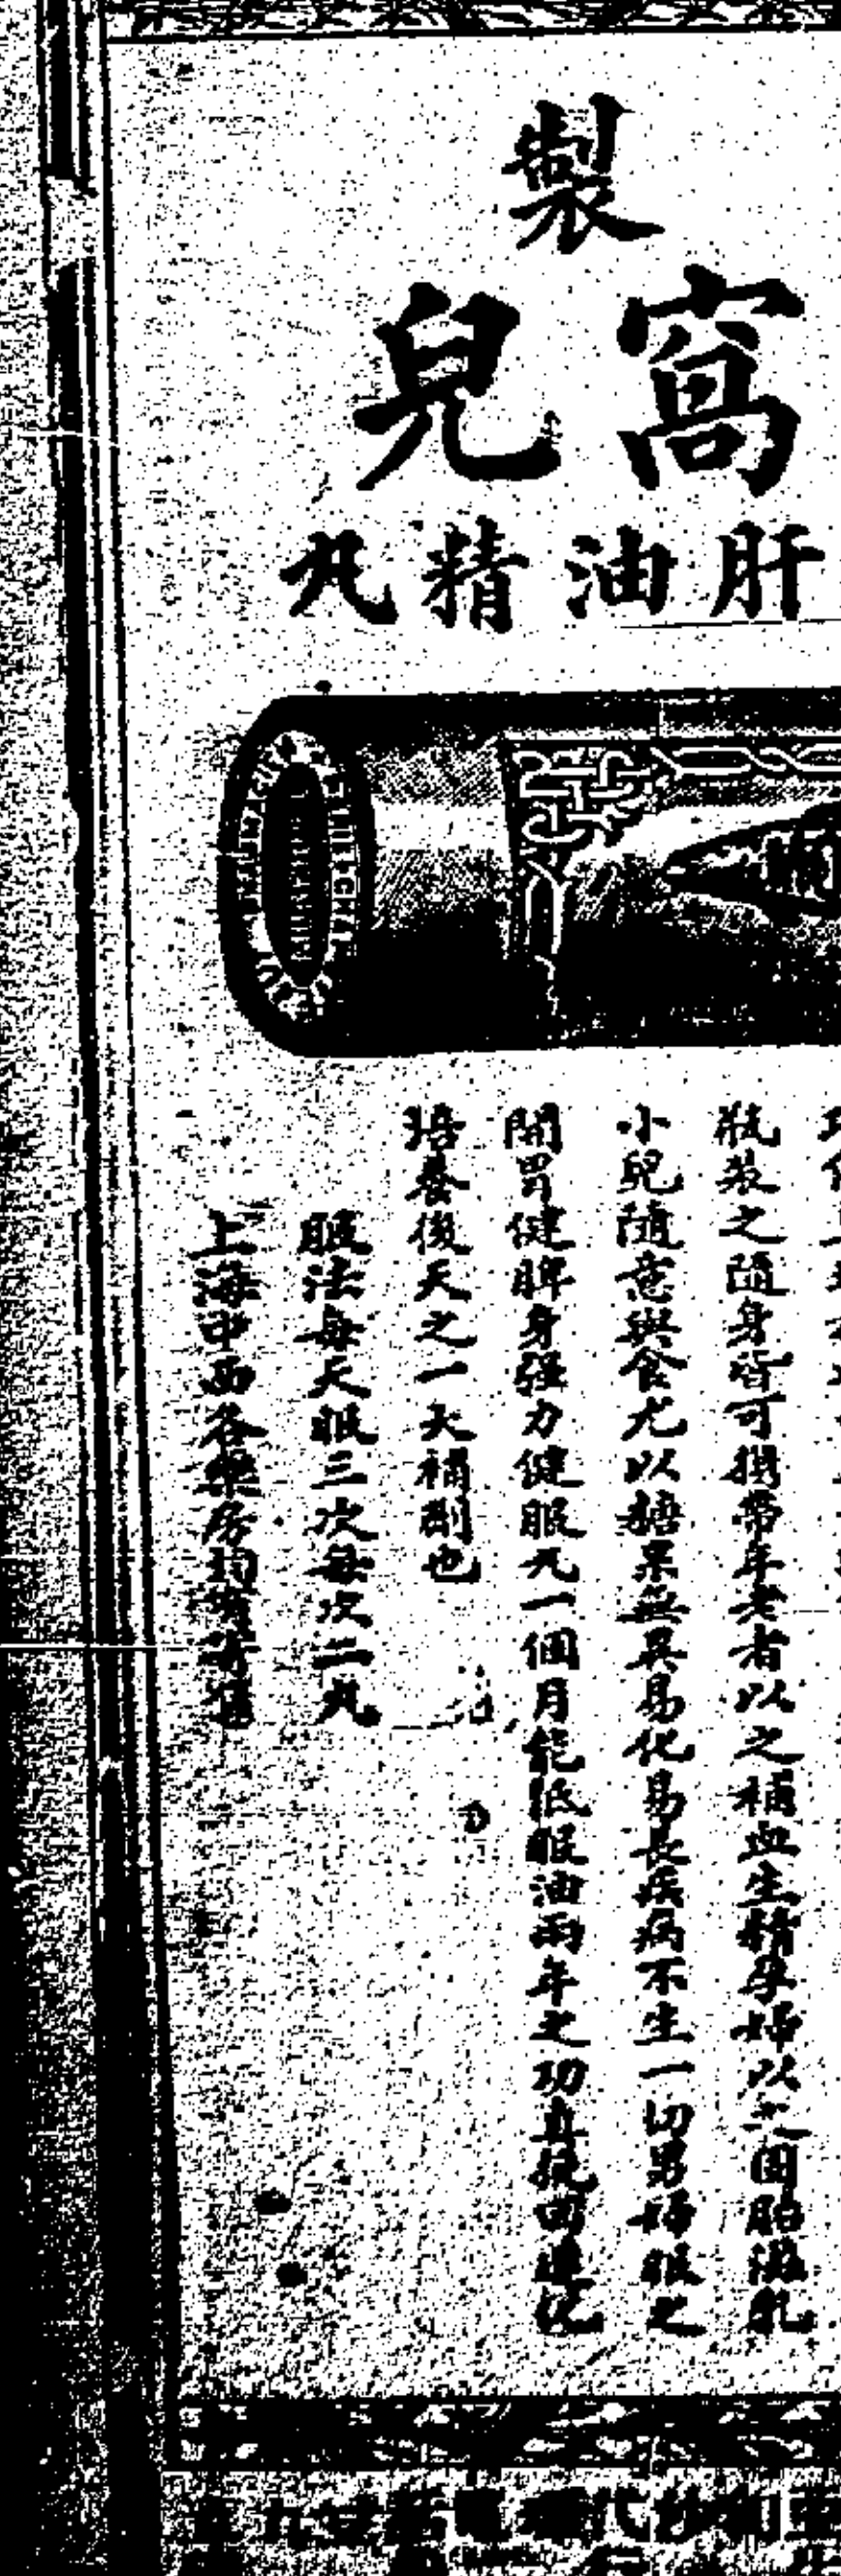 製
窩兒
肝油精丸
瓶裝之隨身皆可攜帶年老者以之補血生精孕婦以之固胎滋乳
小兒隨意與食尤以糖果無異易化易長疾病不生一切男婦服之
開胃健脾身强力健服丸一個月能抵服油兩年之功真挽回造化
培養後天之一大補劑也
服法每天服三次每次二丸
上海中西各藥房均有寄售